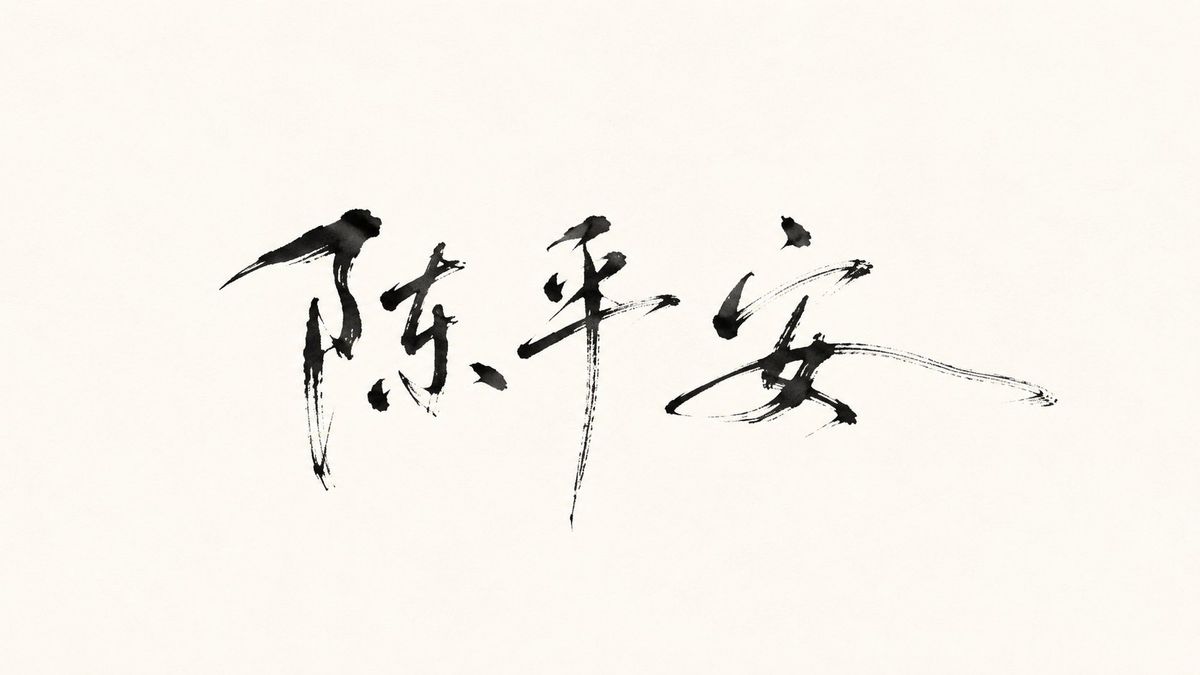 陈平安